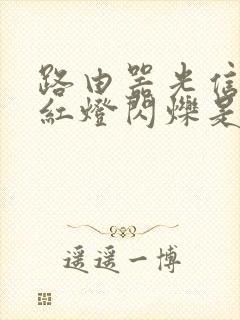 路由器光信
紅燈閃爍是
遥遥一博